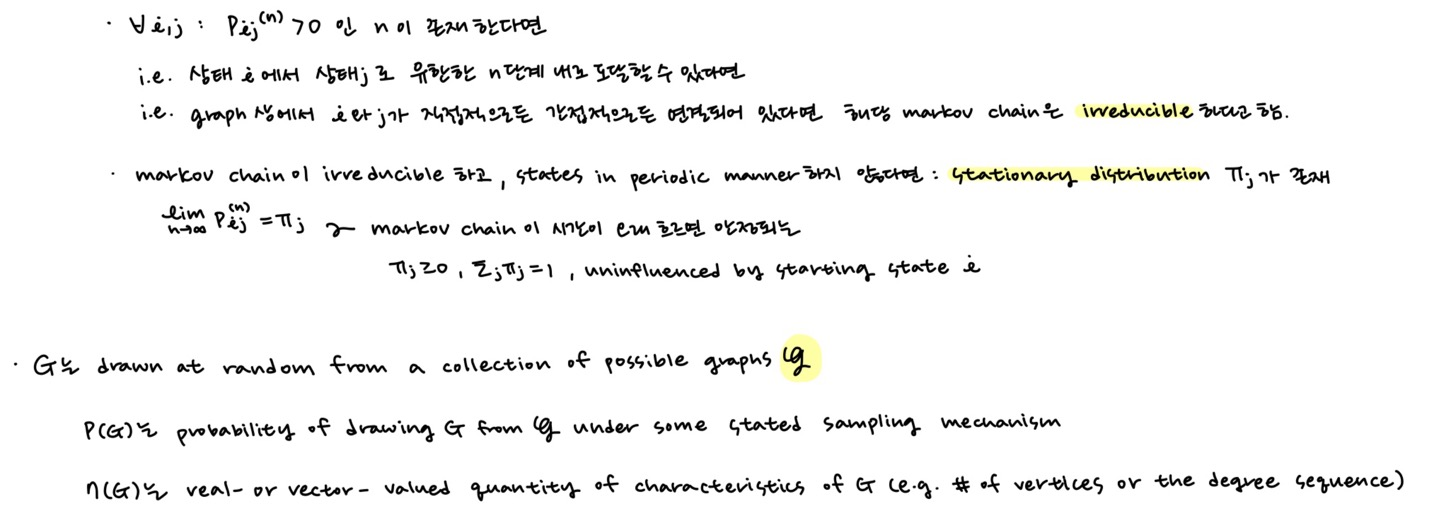 · ∀i,j : Pij⁽ⁿ⁾ > 0 인 n이 존재한다면
i.e. 상태 i에서 상태 j로 유한한 n단계 내로 도달할 수 있다면
i.e. graph 상에서 i와 j가 직접적으로든 간접적으로든 연결되어 있다면 해당 markov chain은 irreducible 하다고 함.
· markov chain이 irreducible 하고, states in periodic manner 하지 않다면 : stationary distribution πj가 존재
lim n→∞ Pij⁽ⁿ⁾ = πj ~ markov chain이 시간이 흐르면 안정되는
πj ≥ 0, Σj πj = 1, uninfluenced by starting state i
· G는 drawn at random from a collection of possible graphs 𝒢
P(G)는 probability of drawing G from 𝒢 under some stated sampling mechanism
η(G)는 real- or vector-valued quantity of characteristics of G (e.g. # of vertices or the degree sequence)